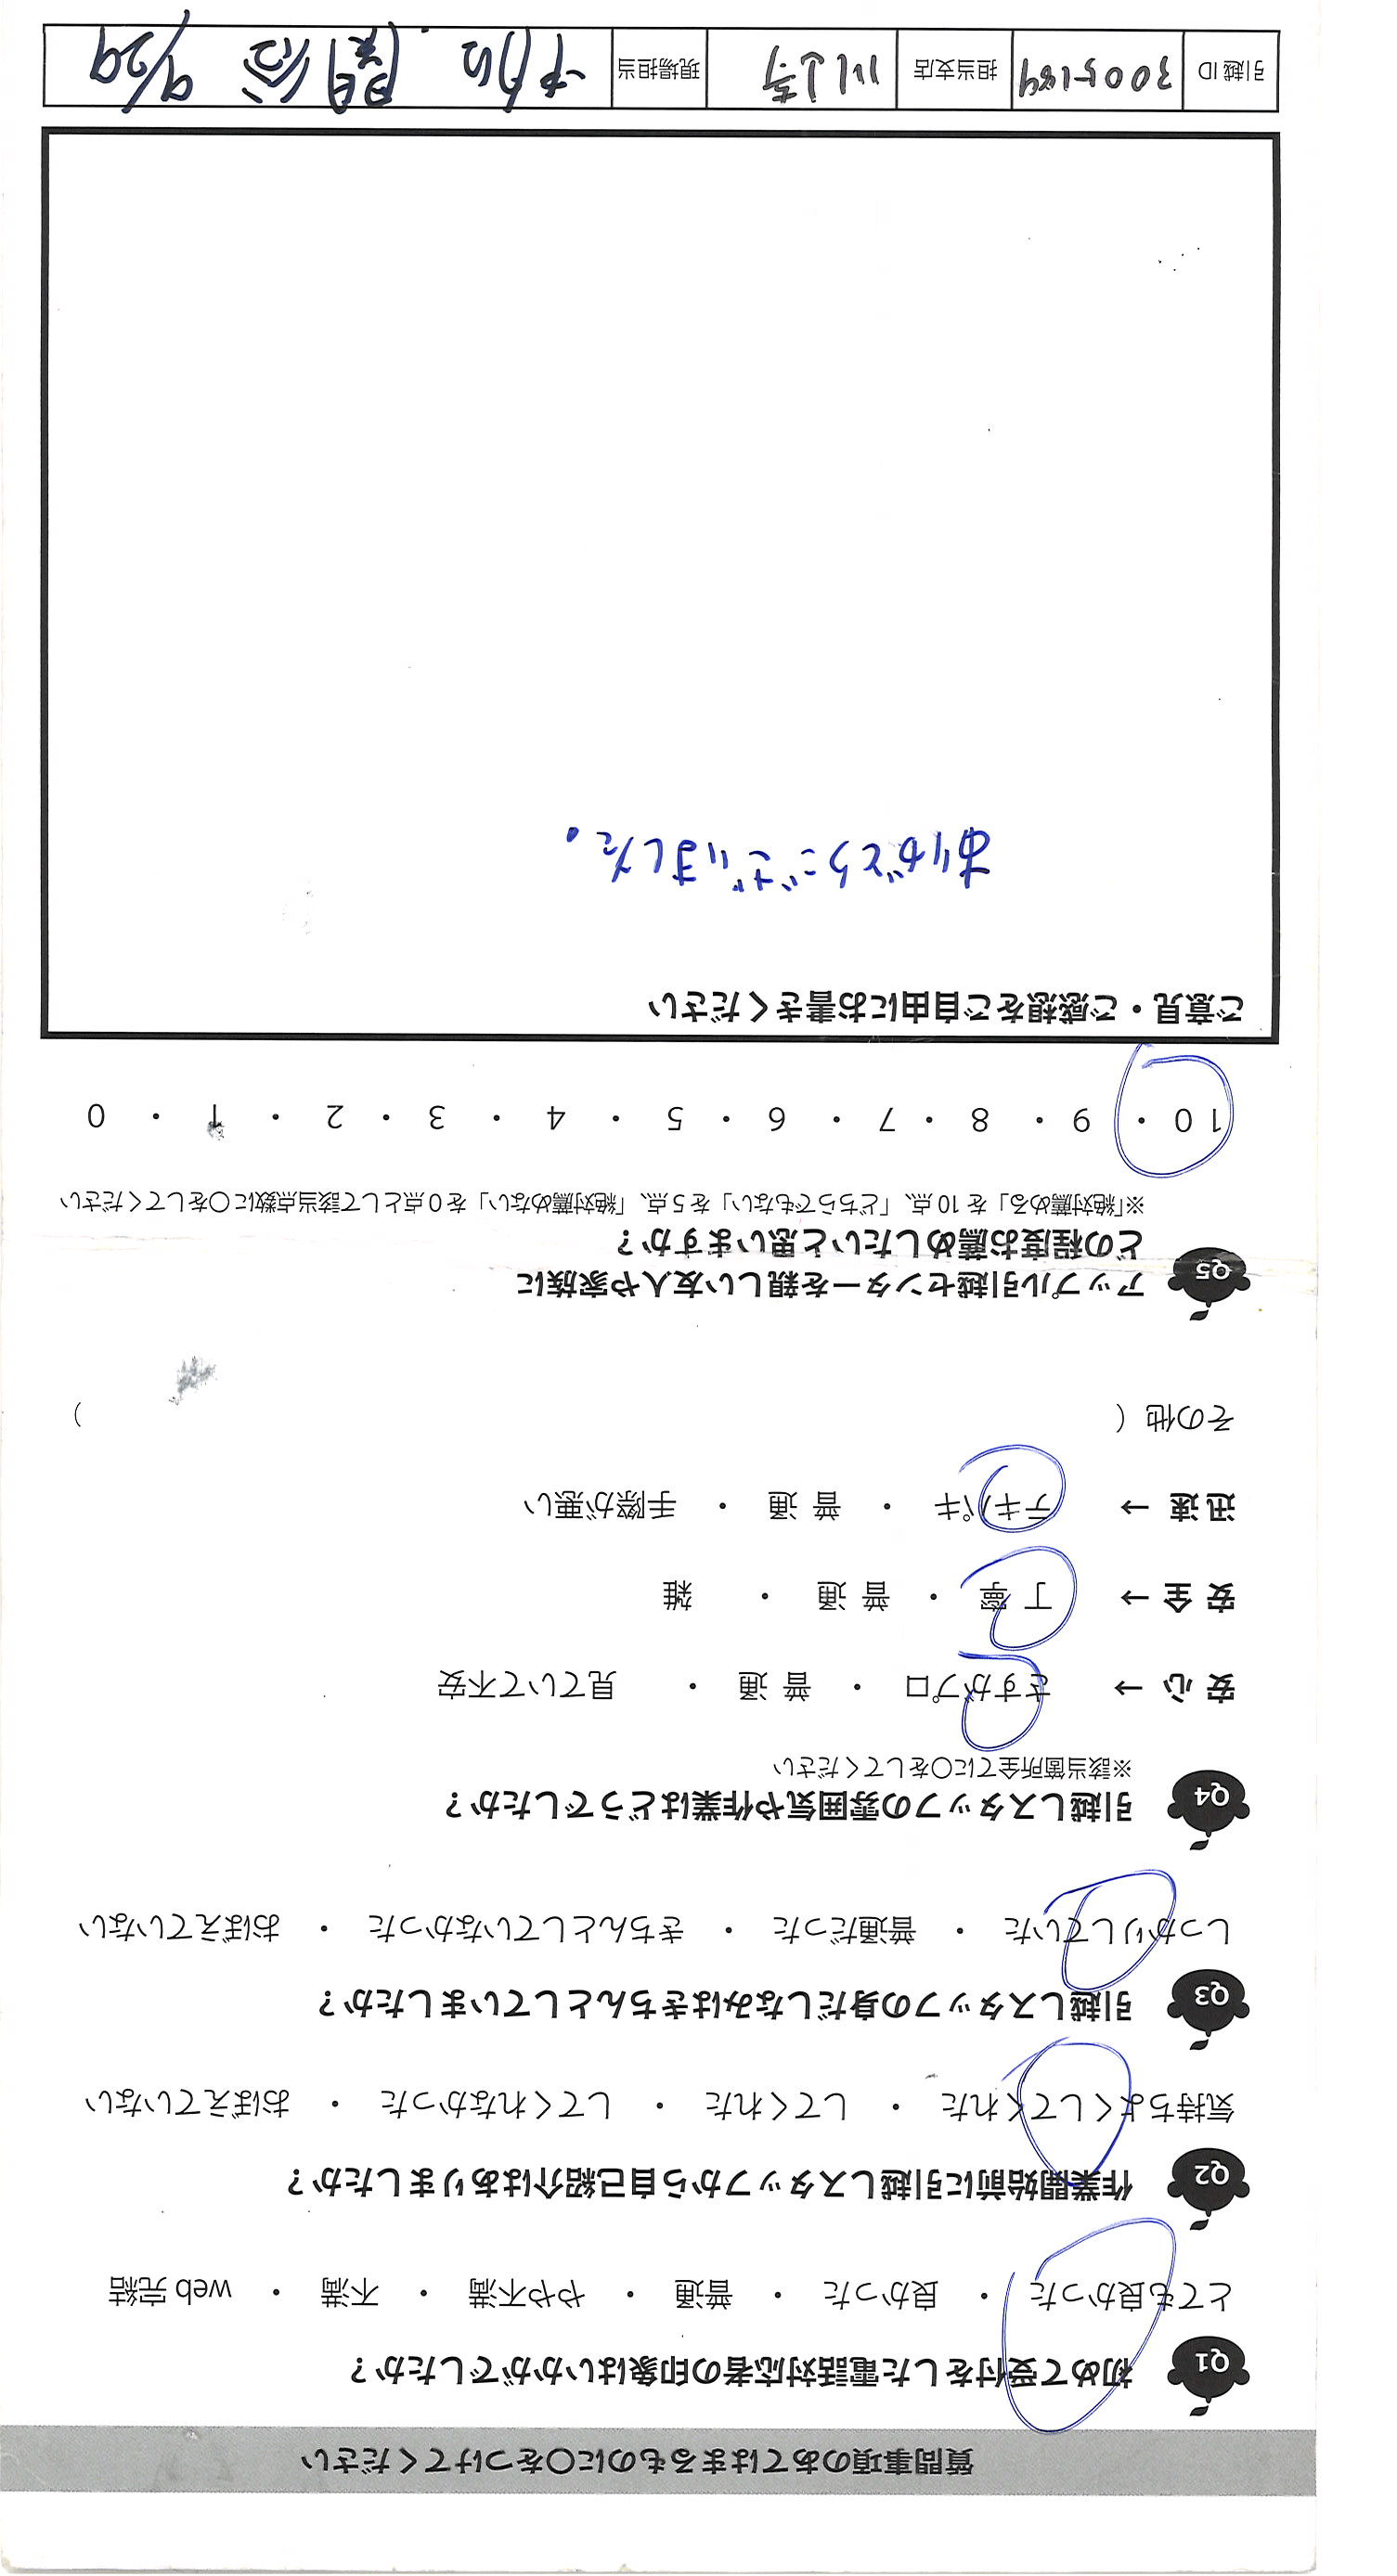 質問事項のあてはまるものに〇をつけてください
Q1 初めて受付をした電話対応者の印象はいかがでしたか？
とても良かった ・ 良かった ・ 普通 ・ やや不満 ・ 不満 ・ web 完結
Q2 作業開始前に引越しスタッフから自己紹介はありましたか？
気持ちよくしてくれた ・ してくれた ・ してくれなかった ・ おぼえていない
Q3 引越しスタッフの身だしなみはきちんとしていましたか？
しっかりしていた ・ 普通だった ・ きちんとしていなかった ・ おぼえていない
Q4 引越しスタッフの雰囲気や作業はどうでしたか？
※該当箇所全てに〇をしてください
安 心 → さすがプロ ・ 普 通 ・ 見ていて不安
安 全 → 丁 寧 ・ 普 通 ・ 雑
迅 速 → テキパキ ・ 普 通 ・ 手際が悪い
その他（ ）
Q5 アップル引越センターを親しい友人や家族に
どの程度お薦めしたいと思いますか？
※「絶対薦める」を 10 点、「どちらでもない」を 5 点、「絶対薦めない」を 0 点として該当点数に〇をしてください
10 ・ 9 ・ 8 ・ 7 ・ 6 ・ 5 ・ 4 ・ 3 ・ 2 ・ 1 ・ 0
ご意見・ご感想をご自由にお書きください
ありがとうございました。
引越 ID 3005184 担当支店 川崎 現場担当 9/29